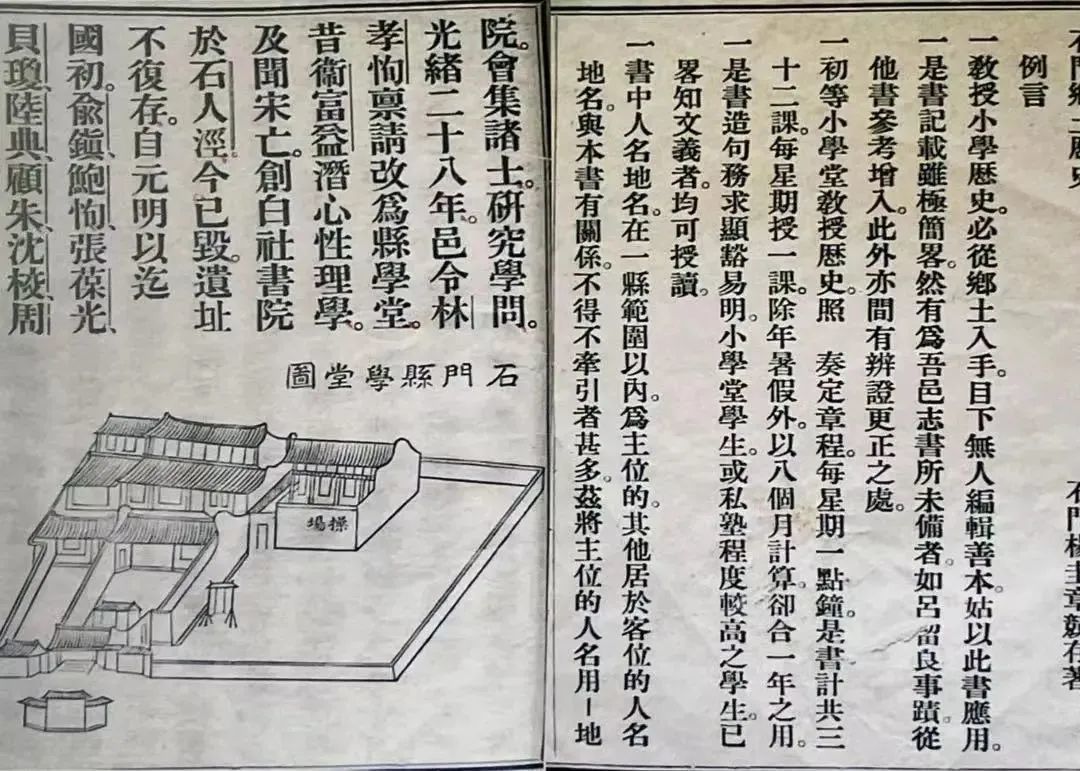 例言
一教授小學歷史。必從鄉土入手。目下無人編輯善本。姑以此書應用。
一是書記載雖極簡畧。然有爲吾邑志書所未備者。如呂留良事蹟。從
他書參考增入。此外亦間有辨證更正之處。
一初等小學堂教授歷史。照　奏定章程。每星期一點鐘。是書計共三
十二課。每星期授一課。除年暑假外。以八個月計算。卻合一年之用。
一是書造句務求顯豁易明。小學堂學生。或私塾程度較高之學生。已
畧知文義者。均可授讀。
一書中人名地名。在一縣範圍以內。爲主位的。其他居於客位的人名
地名。與本書有關係。不得不牽引者甚多。茲將主位的人名用｜地
院。會集諸士。研究學問。
光緒二十八年。邑令林
孝恂稟請改爲縣學堂。
昔衞富益潛心性理學。
及聞宋亡。創白社書院
於石人涇。今已毀。遺址
不復存。自元明以迄
國初。俞鎮、鮑恂、張葆光、
貝瓊、陸典、顧朱、沈棱、周
石門縣學堂圖
操場